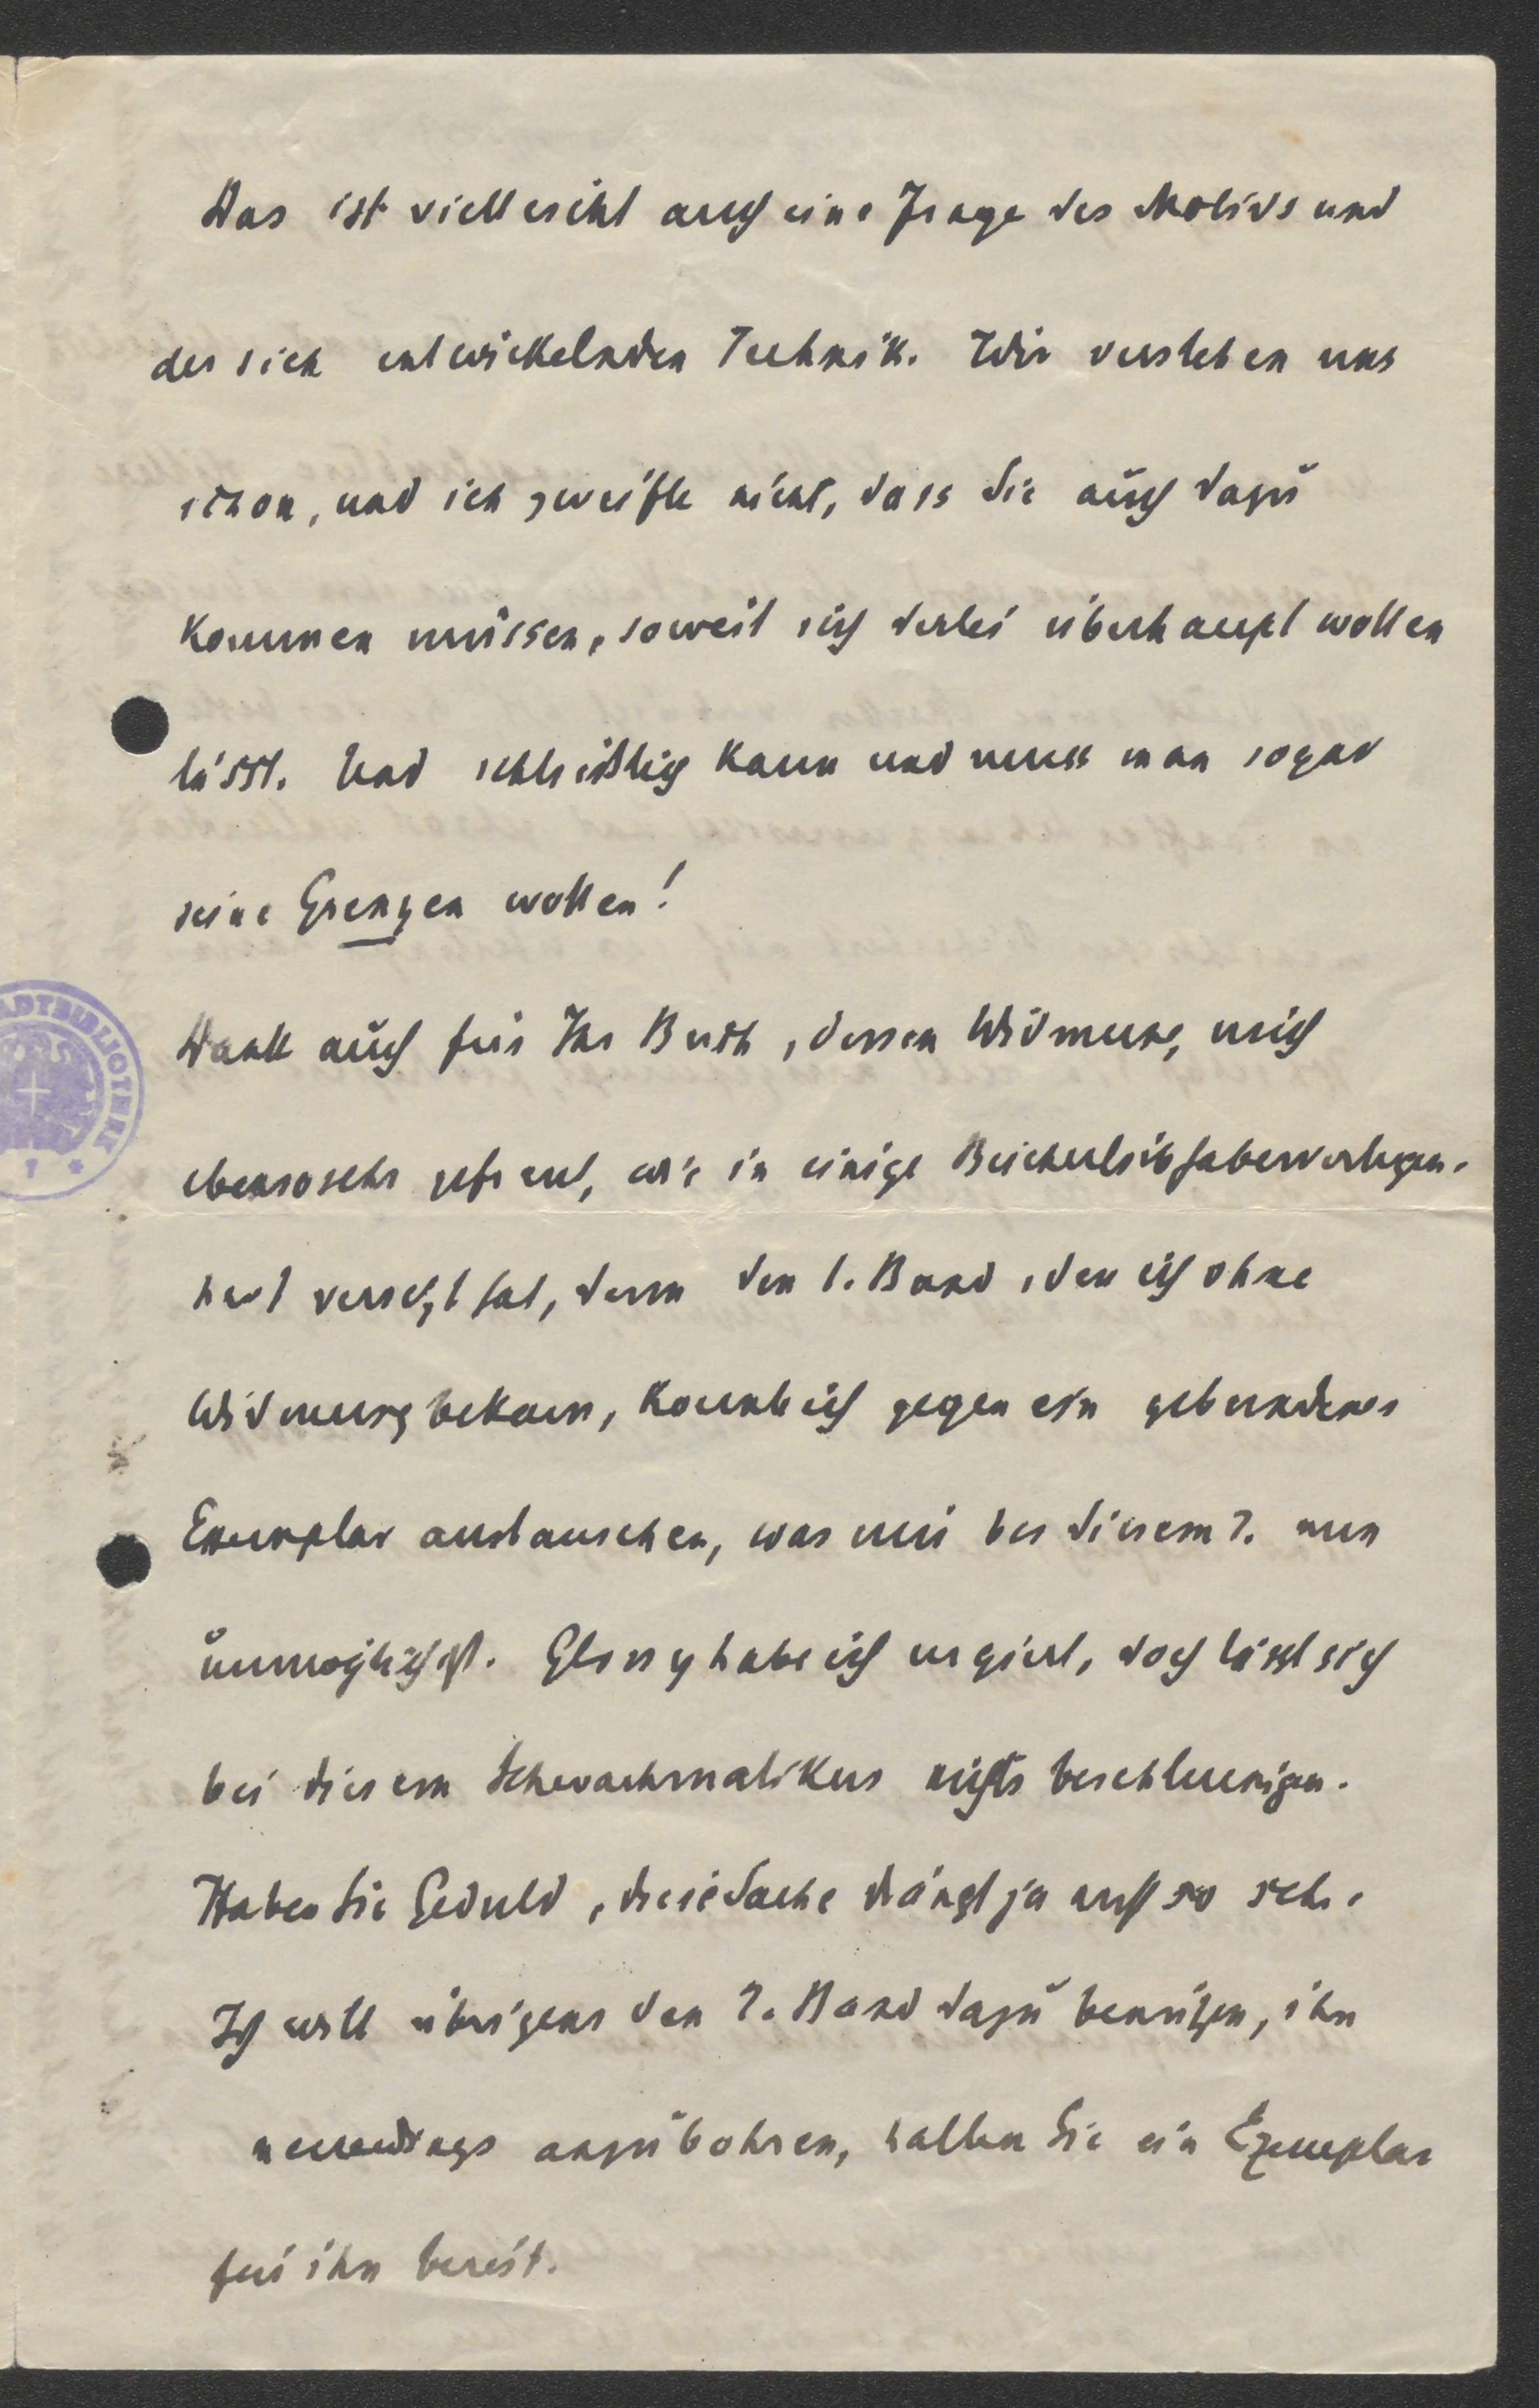 Das ist vielleicht auch eine Frage des Motivs und
der sich entwickelnden Technik. Wir verstehen uns
schon, und ich zweifle nicht, dass Sie auch dazu
kommen müssen, soweit sich derlei überhaupt wollen
lässt. Und schließlich kann und muss man sogar
seine Grenzen wollen!
Dank auch für Ihr Buch, dessen Widmung mich
ebensosehr gefreut, wie in einige Bücherliebhaberverlegen-
heit versetzt hat, denn den 1. Band, den ich ohne
Widmung bekam, konnte ich gegen ein gebundenes
Exemplar austauschen, was mir bei diesem 2. nun
unmöglich ist. habe ich urgiert, doch lässt sich
bei diesem Schwachmatikus nichts beschleunigen.
Haben Sie Geduld, diese Sache drängt ja nicht so sehr.
Ich will übrigens den 2. Band dazu benützen, ihn
neuerdings anzubohren, halten Sie ein Exemplar
für ihn bereit.
ADTBIBLIOTHEK